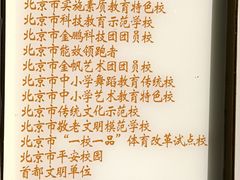 北京市实施素质教育特色校
北京市科技教育示范学校
北京市金鹏科技团团员校
北京市能效领跑者
北京市金帆艺术团团员校
北京市中小学舞蹈教育传统校
北京市中小学艺术教育特色校
北京市传统文化示范校
北京市敬老文明模范学校
北京市“一校一品”体育改革试点校
北京市平安校园
首都文明单位